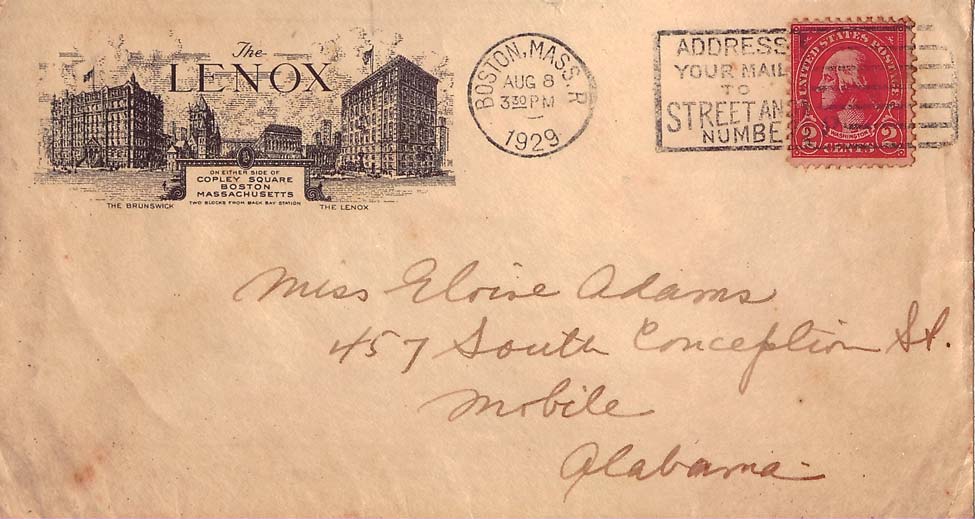 The
LENOX
ON EITHER SIDE OF
COPLEY SQUARE
BOSTON
MASSACHUSETTS
TWO BLOCKS FROM BACK BAY STATION
THE BRUNSWICK
THE LENOX
BOSTON, MASS. R
AUG 8
3 30 PM
1929
ADDRESS
YOUR MAIL
TO
STREET AN
NUMBE
UNITED STATES POSTAGE
WASHINGTON
2 CENTS 2
Miss Eloise Adams
457 South Conception St.
Mobile
Alabama